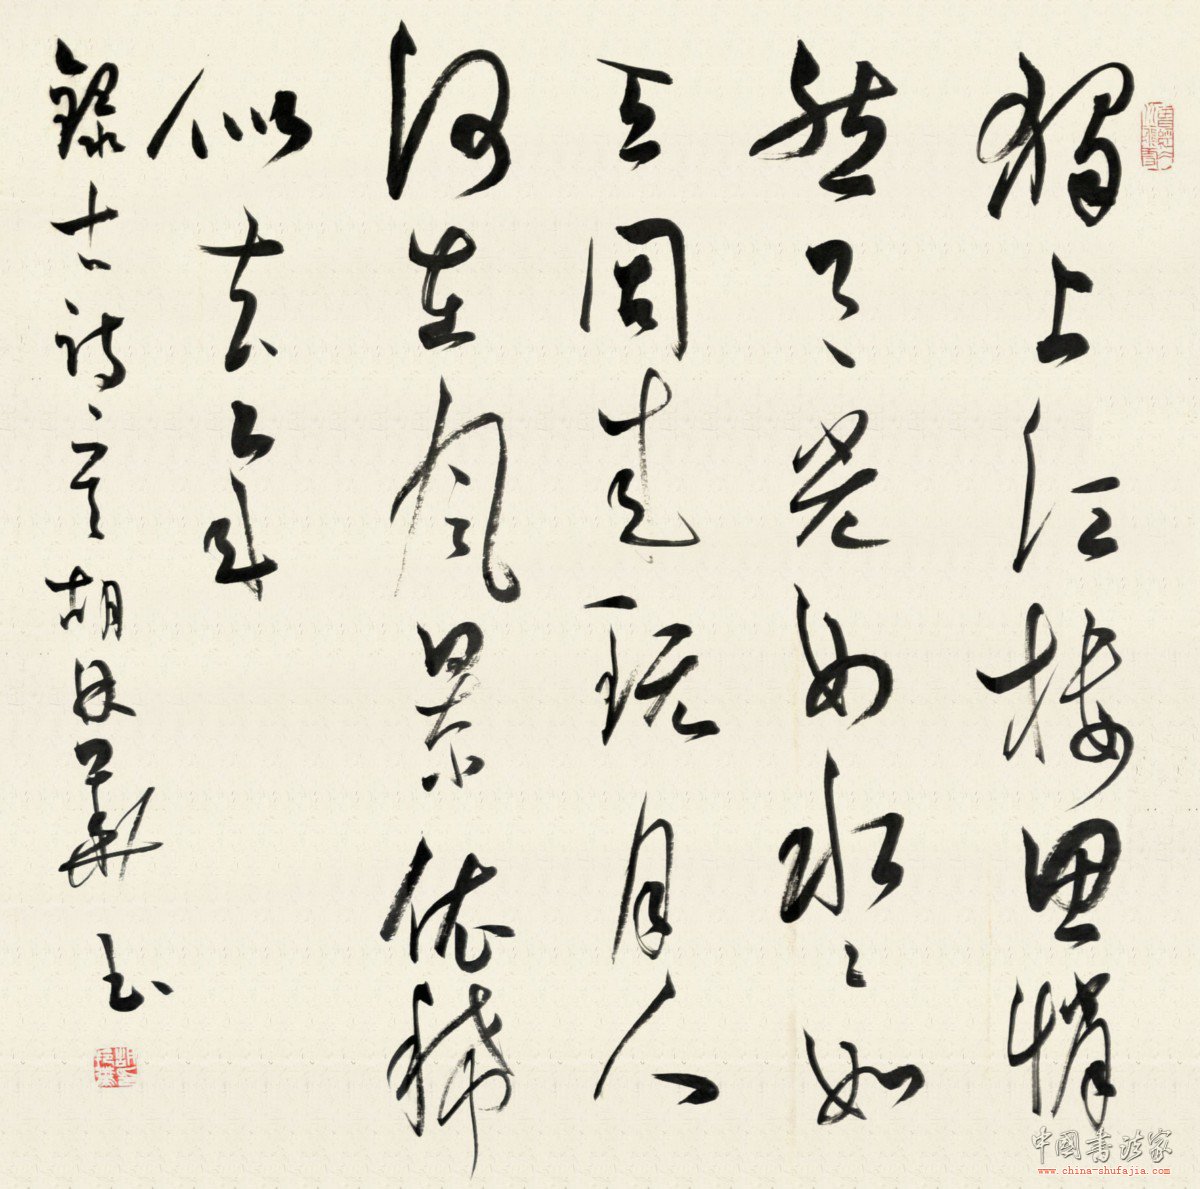 獨上江楼思悄
然月光如水〻如
天同来玩月人
何在風景依稀
似去年
錄古詩一首 胡華书
中國書法家
www.china-shufajia.com